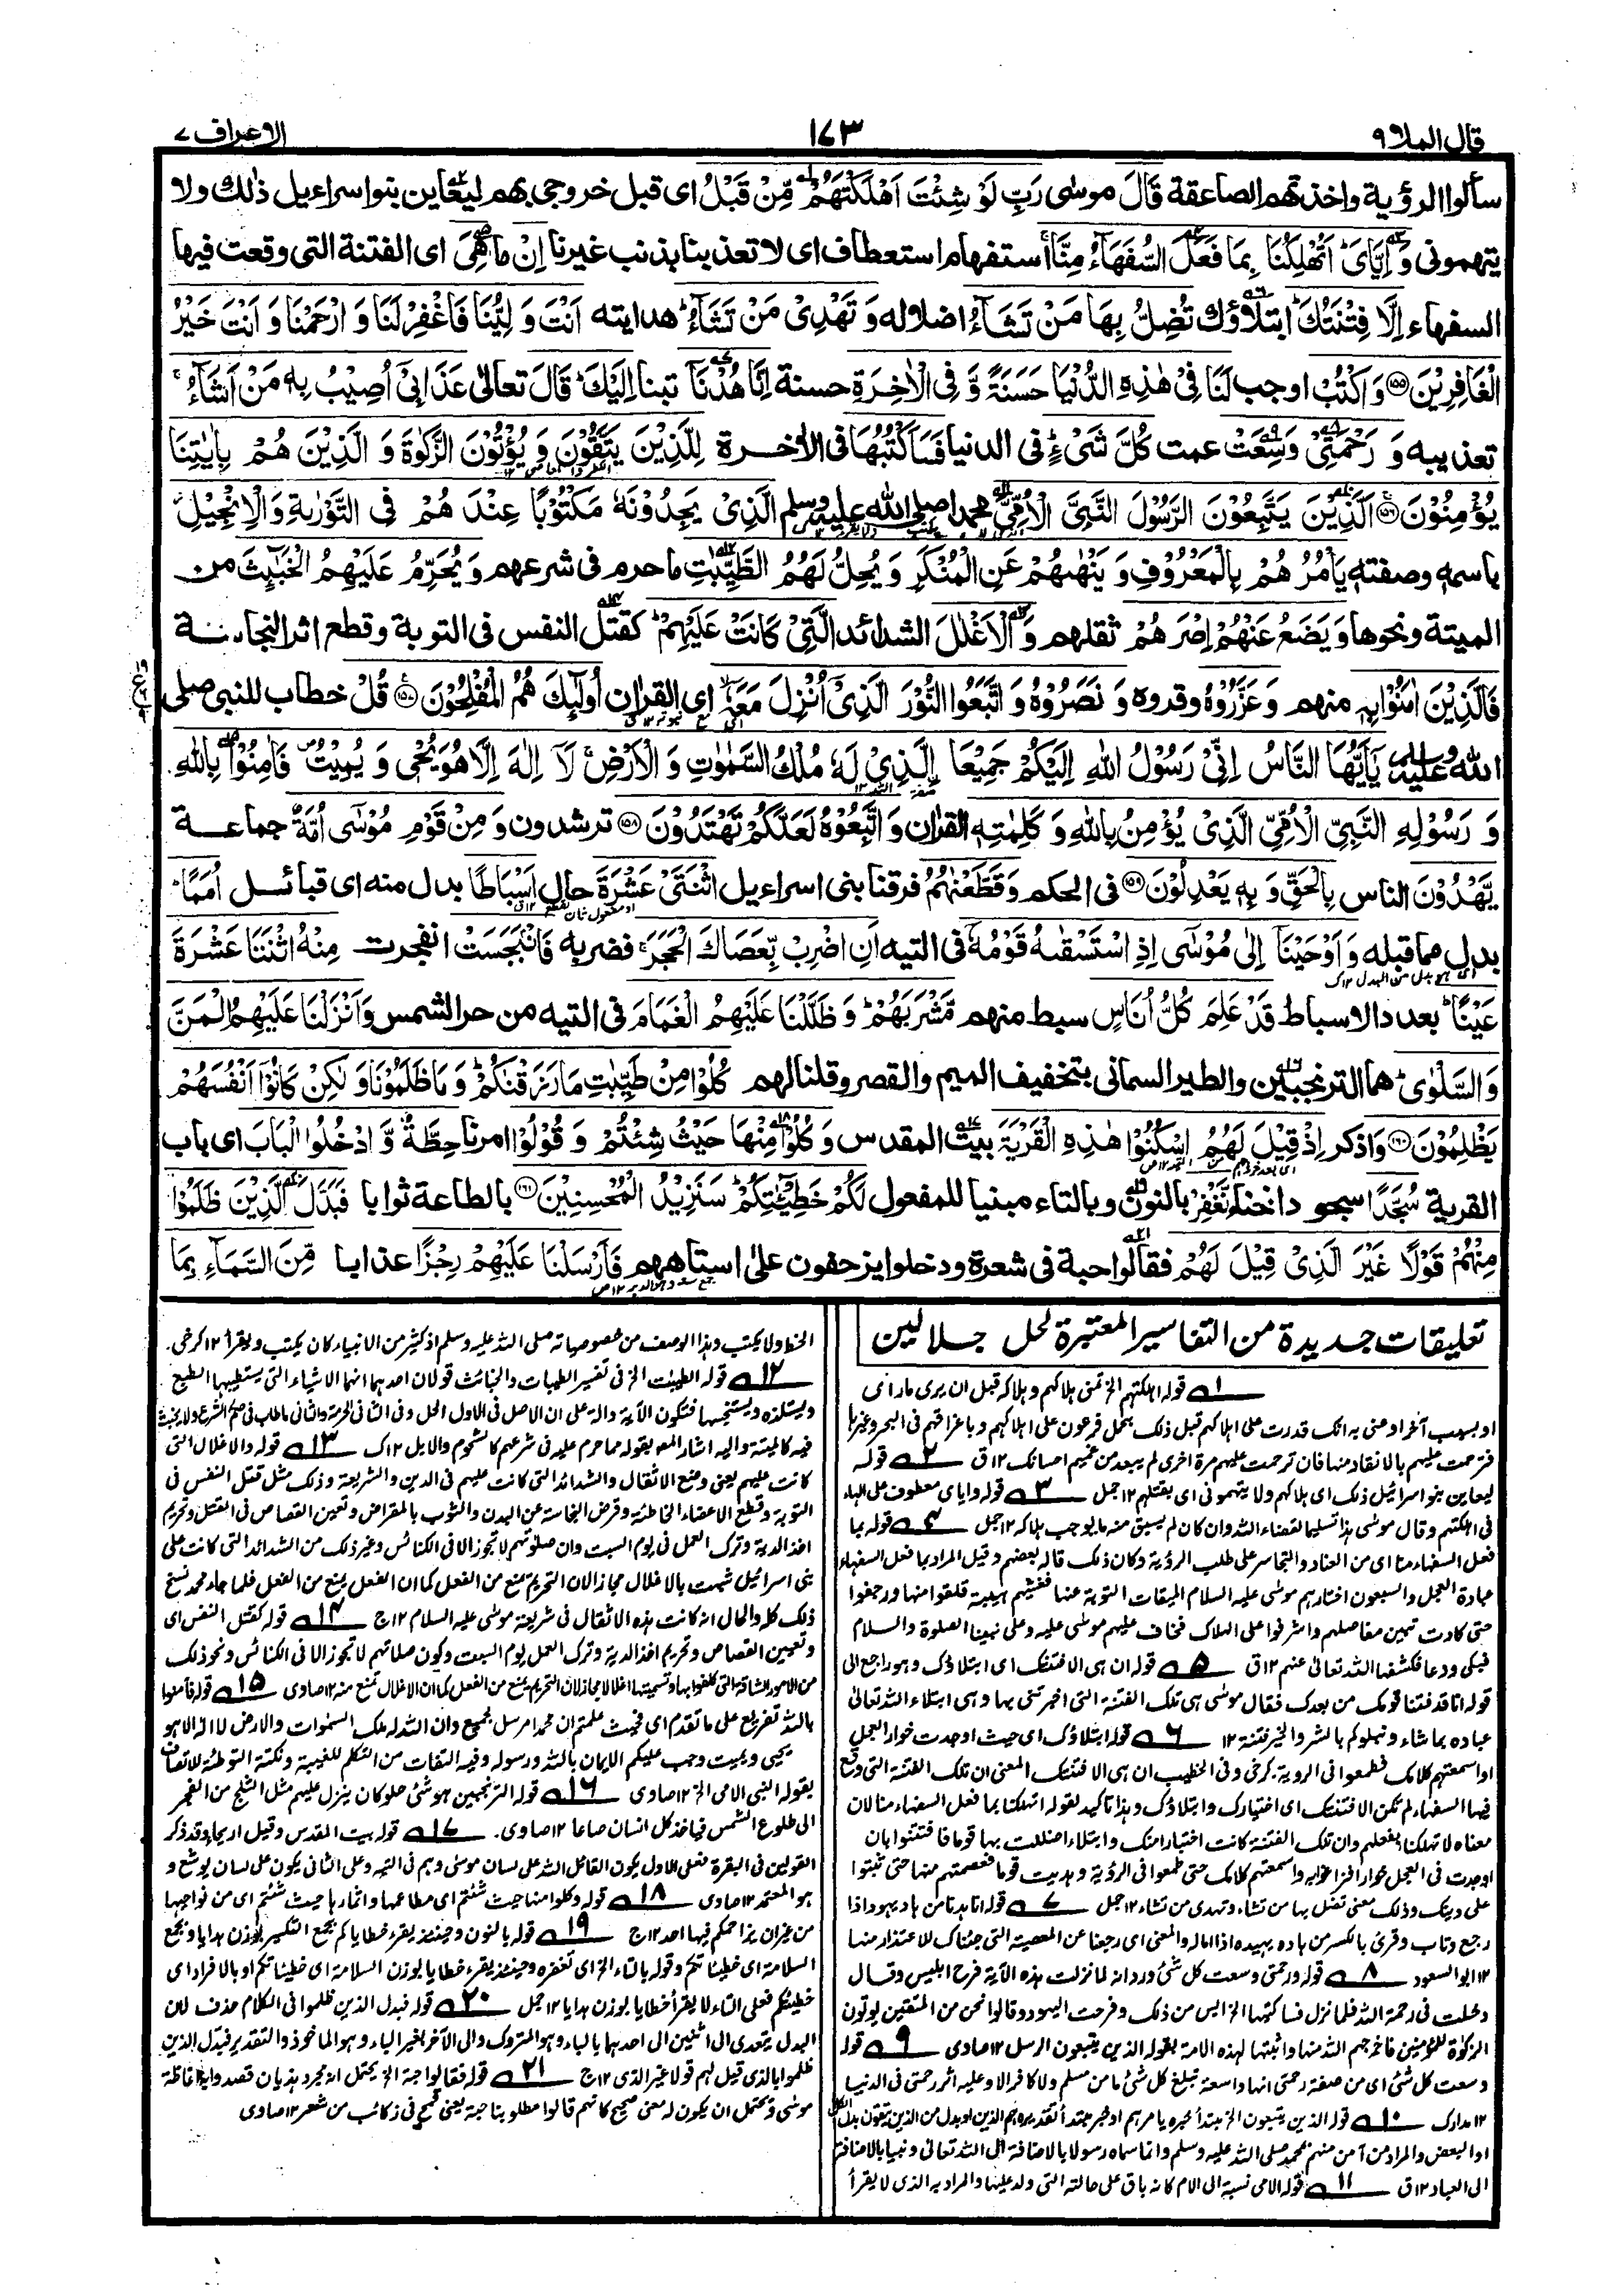 قال الملأ ٩
١٧٣
الاعراف ٧
سألوا الرؤية واخذتهم الصاعقة قَالَ موسٰى رَبِّ لَوْ شِئْتَ اَهْلَكْتَهُمْ مِّنْ قَبْلُ اى قبل خروجى بهم ليعاين بنو اسراءيل ذٰلك ولا
يتهمونى وَ اِيَّاىَ ؕ اَتُهْلِكُنَا بِمَا فَعَلَ السُّفَهَآءُ مِنَّا ۚ استفهام استعطاف اى لا تعذبنا بذنب غيرنا اِنْ ما هِىَ اى الفتنة التى وقعت فيها
السفهاء اِلَّا فِتْنَتُكَ ؕ ابتلاؤك تُضِلُّ بِهَا مَنْ تَشَآءُ اضلاله وَ تَهْدِىْ مَنْ تَشَآءُ ؕ هدايته اَنْتَ وَلِيُّنَا فَاغْفِرْ لَنَا وَ ارْحَمْنَا وَ اَنْتَ خَيْرُ
الْغَافِرِيْنَ ۝١٥٥ وَ اكْتُبْ اوجب لَنَا فِىْ هٰذِهِ الدُّنْيَا حَسَنَةً وَّ فِى الْاٰخِرَةِ حسنة اِنَّا هُدْنَآ تبنا اِلَيْكَ ؕ قَالَ تعالىٰ عَذَابِىْٓ اُصِيْبُ بِهٖ مَنْ اَشَآءُ ۚ
تعذيبه وَ رَحْمَتِىْ وَسِعَتْ عمت كُلَّ شَىْءٍ ؕ فى الدنيا فَسَاَكْتُبُهَا فى الاٰخرة لِلَّذِيْنَ يَتَّقُوْنَ وَ يُؤْتُوْنَ الزَّكٰوةَ وَ الَّذِيْنَ هُمْ بِاٰيٰتِنَا
يُؤْمِنُوْنَ ۝١٥٦ اَلَّذِيْنَ يَتَّبِعُوْنَ الرَّسُوْلَ النَّبِىَّ الْاُمِّىَّ محمدا صلى الله عليه وسلم الَّذِىْ يَجِدُوْنَهٗ مَكْتُوْبًا عِنْدَ هُمْ فِى التَّوْرٰىةِ وَ الْاِنْجِيْلِ
باسمهٖ وصفتهٖ يَاْمُرُ هُمْ بِالْمَعْرُوْفِ وَ يَنْهٰىهُمْ عَنِ الْمُنْكَرِ وَ يُحِلُّ لَهُمُ الطَّيِّبٰتِ ما حرم فى شرعهم وَ يُحَرِّمُ عَلَيْهِمُ الْخَبٰٓئِثَ من
الميتة ونحوها وَ يَضَعُ عَنْهُمْ اِصْرَ هُمْ ثقلهم وَ الْاَغْلٰلَ الشدائد الَّتِىْ كَانَتْ عَلَيْهِمْ ؕ كقتل النفس فى التوبة وقطع اثر النجاسة
فَالَّذِيْنَ اٰمَنُوْا بِهٖ منهم وَ عَزَّرُوْهُ وقروه وَ نَصَرُوْهُ وَ اتَّبَعُوا النُّوْرَ الَّذِىْٓ اُنْزِلَ مَعَهٗٓ ۙ اى القراٰن اُولٰٓئِكَ هُمُ الْمُفْلِحُوْنَ ۝١٥٧ قُلْ خطاب للنبى صلى
الله عليه وسلم يٰٓاَيُّهَا النَّاسُ اِنِّىْ رَسُوْلُ اللّٰهِ اِلَيْكُمْ جَمِيْعَا الَّذِىْ لَهٗ مُلْكُ السَّمٰوٰتِ وَ الْاَرْضِ ۚ لَآ اِلٰهَ اِلَّا هُوَ يُحْىٖ وَ يُمِيْتُ ۪ فَاٰمِنُوْا بِاللّٰهِ
وَ رَسُوْلِهِ النَّبِىِّ الْاُمِّىِّ الَّذِىْ يُؤْمِنُ بِاللّٰهِ وَ كَلِمٰتِهٖ القراٰن وَ اتَّبِعُوْهُ لَعَلَّكُمْ تَهْتَدُوْنَ ۝١٥٨ ترشدون وَ مِنْ قَوْمِ مُوْسٰٓى اُمَّةٌ جماعة
يَّهْدُوْنَ الناس بِالْحَقِّ وَ بِهٖ يَعْدِلُوْنَ ۝١٥٩ فى الحكم وَ قَطَّعْنٰهُمُ فرقنا بنى اسراءيل اثْنَتَىْ عَشْرَةَ حال اَسْبَاطًا بدل منه اى قبائل اُمَمًا ؕ
بدل مما قبله وَ اَوْحَيْنَآ اِلٰى مُوْسٰٓى اِذِ اسْتَسْقٰىهُ قَوْمُهٗٓ فى التيه اَنِ اضْرِبْ بِّعَصَاكَ الْحَجَرَ ۚ فضربه فَانْۢبَجَسَتْ انفجرت مِنْهُ اثْنَتَا عَشْرَةَ
عَيْنًا ؕ بعدد الاسباط قَدْ عَلِمَ كُلُّ اُنَاسٍ سبط منهم مَّشْرَبَهُمْ ؕ وَ ظَلَّلْنَا عَلَيْهِمُ الْغَمَامَ فى التيه من حر الشمس وَ اَنْزَلْنَا عَلَيْهِمُ الْمَنَّ
وَ السَّلْوٰى ؕ هما الترنجبين والطير السمانى بتخفيف الميم والقصر وقلنا لهم كُلُوْا مِنْ طَيِّبٰتِ مَا رَزَقْنٰكُمْ ؕ وَ مَا ظَلَمُوْنَا وَ لٰكِنْ كَانُوْٓا اَنْفُسَهُمْ
يَظْلِمُوْنَ ۝١٦٠ وَ اذكر اِذْ قِيْلَ لَهُمُ اسْكُنُوْا هٰذِهِ الْقَرْيَةَ بيت المقدس وَ كُلُوْا مِنْهَا حَيْثُ شِئْتُمْ وَ قُوْلُوْا امرنا حِطَّةٌ وَّ ادْخُلُوا الْبَابَ اى باب
القرية سُجَّدًا سجود انحناء نَّغْفِرْ بالنون وبالتاء مبنيا للمفعول لَكُمْ خَطِيْٓـٰٔتِكُمْ ؕ سَنَزِيْدُ الْمُحْسِنِيْنَ ۝١٦١ بالطاعة ثوابا فَبَدَّلَ الَّذِيْنَ ظَلَمُوْا
مِنْهُمْ قَوْلًا غَيْرَ الَّذِىْ قِيْلَ لَهُمْ فقالوا حبة فى شعرة ودخلوا يزحفون علىٰ استاههم فَاَرْسَلْنَا عَلَيْهِمْ رِجْزًا عذابا مِّنَ السَّمَآءِ بِمَا
تعليقات جديدة من التفاسير المعتبرة لحل جلالين
١ـه قوله اهلكتهم الخ تمنى هلاكهم وهلاكه قبل ان يرى ما رأى
او بسبب آخر او عنى به انك قدرت على اهلاكهم قبل ذلك بحمل فرعون على اهلاكهم وباغراقهم فى البحر وغيرها
فترحمت عليهم بالانقاذ منها فان ترحمت عليهم مرة اخرى لم يبعد من عميم احسانك ١٢ ق ٢ـه قوله
ليعاين بنو اسرائيل ذلك اى هلاكهم ولا يتهمونى اى بقتلهم ١٢ جمل ٣ـه قوله واياى معطوف على الهاء
فى اهلكتهم وقال موسى هذا تسليما لقضاء الله وان كان لم يسبق منه ما يوجب هلاكه ١٢ جمل ٤ـه قوله بما
فعل السفهاء منا اى من العناد والتجاسر على طلب الرؤية وكان ذلك قاله بعضهم وقيل المراد بما فعل السفهاء
عبادة العجل والسبعون اختارهم موسى عليه السلام لميقات التوبة عنها فغشيهم هيبة قلقوا منها ورجفوا
حتى كادت تبين مفاصلهم واشرفوا على الهلاك فخاف عليهم موسى عليه وعلى نبينا الصلوة والسلام
فبكى ودعا فكشفها الله تعالى عنهم ١٢ ق ٥ـه قوله ان هى الا فتنتك اى ابتلاؤك وهو راجع الى
قوله انا قد فتنا قومك من بعدك فقال موسى هى تلك الفتنة التى اخبرتنى بها وهى ابتلاء الله تعالى
عباده بما شاء ونبلوكم بالشر والخير فتنة ١٢ ٦ـه قوله ابتلاؤك اى حيث اوجدت خوار العجل
او اسمعتهم كلامك فطمعوا فى الروية. كرخى وفى الخطيب ان هى الا فتنتك المعنى ان تلك الفتنة التى وقع
فيها السفهاء لم تكن الا فتنتك اى اختبارك وابتلاؤك وهذا تاكيد لقوله اتهلكنا بما فعل السفهاء منا لان
معناه لا تهلكنا بفعلهم وان تلك الفتنة كانت اختبارا منك وابتلاء اضللت بها قوما فافتتنوا بان
اوجدت فى العجل خوارا فزاغوا به واسمعتهم كلامك حتى طمعوا فى الرؤية وهديت قوما فعصمتهم منها حتى ثبتوا
على دينك وذلك معنى تضل بها من تشاء وتهدى من تشاء ١٢ جمل ٧ـه قوله انا هدنا من هاد يهود اذا
رجع وتاب وقرئ بالكسر من هاده يهيده اذا اماله والمعنى اى رجعنا عن المعصية التى جئناك للاعتذار منها
١٢ ابو السعود ٨ـه قوله ورحمتى وسعت كل شئ ورد انه لما نزلت هذه الآية فرح ابليس وقال
دخلت فى رحمة الله فلما نزل فساكتبها الخ ايس من ذلك وفرحت اليهود وقالوا نحن من المتقين يؤتون
الزكوٰة المؤمنين فاخرجهم الله منها واثبتها لهذه الامة بقوله الذين يتبعون الرسل ١٢ صاوى ٩ـه قوله
وسعت كل شئ اى من صفة رحمتى انها واسعة تبلغ كل شئ ما من مسلم ولا كافر الا وعليه اثر رحمتى فى الدنيا
١٢ مدارك ١٠ـه قوله الذين يتبعون الخ مبتدأ خبره يامرهم او خبر مبتدأ تقديره هم الذين او بدل من الذين يتقون بدل الكل
او البعض والمراد من آمن منهم بمحمد صلى الله عليه وسلم وانما سماه رسولا بالاضافة الى الله تعالى ونبيا بالاضافة
الى العباد ١٢ ق ١١ـه قوله الامى نسبة الى الام كانه باق على حالته التى ولد عليها والمراد به الذى لا يقرأ
الخط ولا يكتب وهذا الوصف من خصوصياته صلى الله عليه وسلم اذ كثير من الانبياء كان يكتب ويقرأ ١٢ كرخى.
١٢ـه قوله الطيبٰت الخ فى تفسير الطيبات والخبائث قولان احدهما انهما الاشياء التى يستطيبها الطبع
ويستلذه ويستخبثها فتكون الآية دالة على ان الاصل فى الاول الحل وفى الثانى الحرمة والثانى ما طاب فى حكم الشرع وما يخبث
فيه كالميتة واليه اشار المصـ بقوله مما حرم عليه فى شرعهم كالشحوم والابل ١٢ ك ١٣ـه قوله والاغلال التى
كانت عليهم يعنى وضع الاثقال والشدائد التى كانت عليهم فى الدين والشريعة وذلك مثل قتل النفس فى
التوبة وقطع الاعضاء الخاطئة وقرض النجاسة عن البدن والثوب بالمقراض وتعين القصاص فى القتل وتحريم
اخذ الدية وترك العمل فى يوم السبت وان صلوتهم لا تجوز الا فى الكنائس وغير ذلك من الشدائد التى كانت على
بنى اسرائيل شبهت بالاغلال مجازا لان التحريم يمنع من الفعل كما ان الغل يمنع من الفعل فلما جاء محمد نسخ
ذلك كله والحال انه كانت هذه الاثقال فى شريعة موسى عليه السلام ١٢ ج ١٤ـه قوله كقتل النفس اى
وتعيين القصاص وتحريم اخذ الدية وترك العمل يوم السبت وكون صلاتهم لا تجوز الا فى الكنائس ونحو ذلك
من الامور الشاقة التى كلفوا بها وتسميتها اغلالا مجاز لان التحريم يمنع من الفعل كما ان الاغلال تمنع منه ١٢ صاوى ١٥ـه قوله فآمنوا
بالله تفريع على ما تقدم اى فحيث علمتم ان محمدا مرسل لجميع وان الله له ملك السموات والارض لا اله الا هو
يحيى ويميت وجب عليكم الايمان بالله ورسوله وفيه التفات من التكلم للغيبة ونكتة التوطئة للاتصاف
بقوله النبى الامى الخ ١٢ صاوى ١٦ـه قوله الترنجبين هو شئ حلو كان ينزل عليهم مثل الثلج من الفجر
الى طلوع الشمس فياخذ كل انسان صاعا ١٢ صاوى. ١٧ـه قوله بيت المقدس وقيل اريحا وقد ذكر
القولين فى البقرة فعلى الاول يكون القائل الله على لسان موسى وهم فى التيه وعلى الثانى يكون على لسان يوشع و
هو المعتمد ١٢ صاوى ١٨ـه قوله وكلوا منها حيث شئتم اى مطاعمها واثمارها حيث شئتم اى من نواحيها
من غير ان يزاحمكم فيها احد ١٢ ج ١٩ـه قوله بالنون وحينئذ يقرء خطاياكم بجمع التكسير بوزن هدايا وبجمع
السلامة اى خطيئاتكم وقوله بالتاء الخ اى تغفره وحينئذ يقرء خطايا بوزن السلامة اى خطيئاتكم او بالافراد اى
خطيئتكم فعلى التاء لا يقرأ خطايا بوزن هدايا ١٢ جمل ٢٠ـه قوله فبدل الذين ظلموا فى الكلام حذف لان
البدل يتعدى الى اثنين الى احدهما بالباء وهو المتروك والى الآخر بغير الباء وهو الماخوذ والتقدير فبدل الذين
ظلموا بالذى قيل لهم قولا غير الذى ١٢ ج ٢١ـه قوله فقالوا حبة الخ يحتمل انه مجرد هذيان قصدوا به اغاظة
موسى ويحتمل ان يكون له معنى صحيح كانهم قالوا مطلوبنا حبة يعنى قمح فى زكائب من شعر ١٢ صاوى